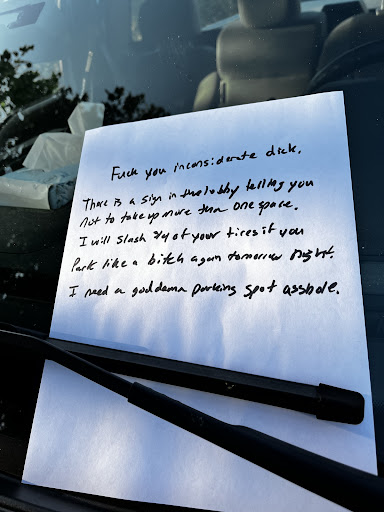 Fuck you inconsiderate dick.
There is a sign in the lobby telling you
not to take up more than one space.
I will slash 3/4 of your tires if you
Park like a bitch again tomorrow night.
I need a goddamn parking spot asshole.